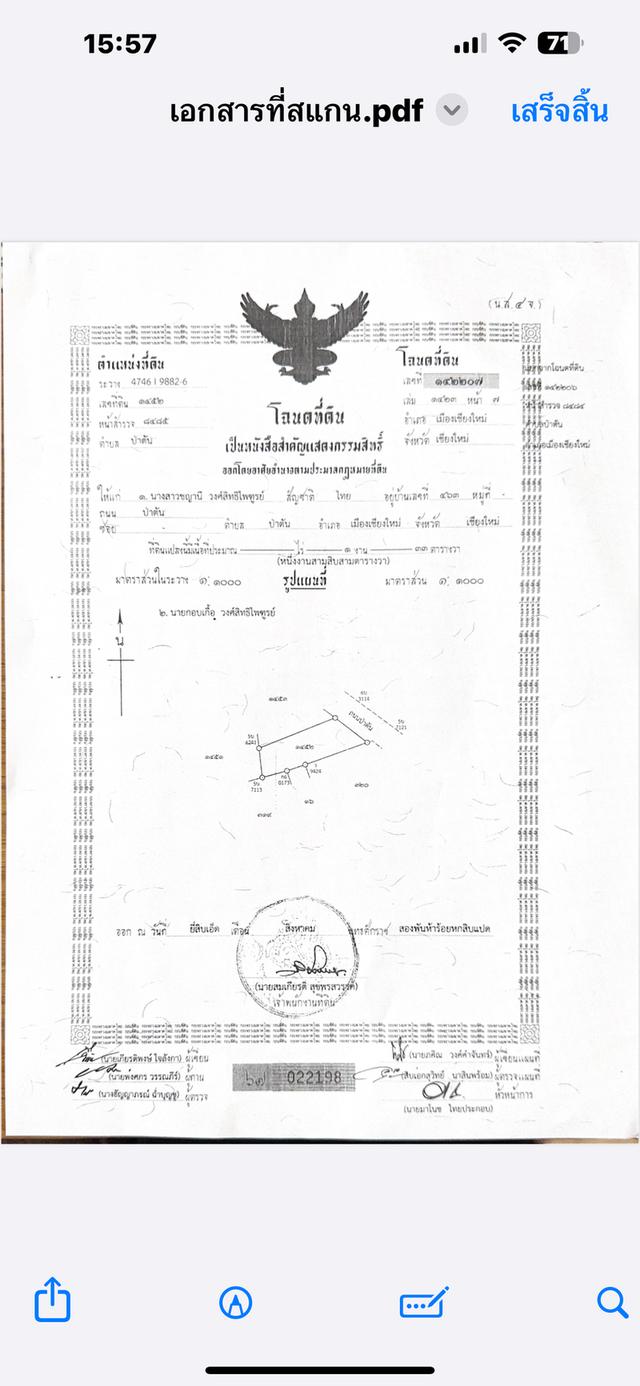 15:57
71
เอกสารที่สแกน.pdf
เสร็จสิ้น
(น.ส. ๔ จ.)
ตำแหน่งที่ดิน
ระวาง 4746 I 9882-6
เลขที่ดิน ๑๔๕๒
หน้าสำรวจ ๘๔๘๕
ตำบล ป่าตัน
โฉนดที่ดิน
เลขที่ ๑๔๒๒๐๗
เล่ม ๑๔๒๓ หน้า ๗
อำเภอ เมืองเชียงใหม่
จังหวัด เชียงใหม่
โฉนดที่ดิน
เลขที่ ๑๔๒๒๐๖
หน้าสำรวจ ๘๔๘๔
ตำบลป่าตัน
อำเภอเมืองเชียงใหม่
โฉนดที่ดิน
เป็นหนังสือสำคัญแสดงกรรมสิทธิ์
ออกโดยอาศัยอำนาจตามประมวลกฎหมายที่ดิน
ให้แก่ ๑. นางสาวชญานี วงศ์สิทธิไพฑูรย์ สัญชาติ ไทย อยู่บ้านเลขที่ ๔๖๓ หมู่ที่ -
ถนน ป่าตัน
ซอย - ตำบล ป่าตัน อำเภอ เมืองเชียงใหม่ จังหวัด เชียงใหม่
ที่ดินแปลงนี้มีเนื้อที่ประมาณ ไร่ ๑ งาน ๓๓ ตารางวา
(หนึ่งงานสามสิบสามตารางวา)
มาตราส่วนในระวาง ๑: ๑๐๐๐ รูปแผนที่ มาตราส่วน ๑: ๑๐๐๐
๒. นายกอบเกื้อ วงศ์สิทธิไพฑูรย์
น
๑๔๕๓
5114
ถนนป่าตัน
7121
6241
๑๔๕๑
๑๔๕๒
7113
0173
9424
๑๖
ออก ณ วันที่ ยี่สิบเอ็ด เดือน สิงหาคม พุทธศักราช สองพันห้าร้อยหกสิบแปด
(นายสมเกียรติ สุขพรสวรรค์)
เจ้าพนักงานที่ดิน
(นายเกียรติพงษ์ ใจลังกา) ผู้เขียน
(นายพงศกร วรรณภีร์) ผู้ทาน
(นางธัญญาภรณ์ ฉ่ำบุญชู) ผู้ตรวจ
022198
(นายภคิณ วงศ์คำจันทร์) ผู้เขียนแผนที่
(สิบเอกสุวิทย์ นาสินพร้อม) ผู้ตรวจแผนที่
หัวหน้าการ
(นายมาโนช ไทยประกอบ)